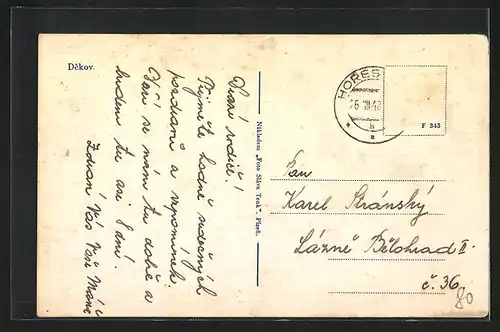 Děkov.
Drazí rodiče!
Přijměte hodně srdečných
pozdravů a vzpomínek.
Daří se nám tu dobře a
budem tu asi 8 dní.
Zdraví Vás Vaši
Nákladem „Foto Sláva Tenk“, Plzeň.
HOŘES
26 VII 48
b
F 343
Pan
Karel Stránský
Lázně Bělohrad II.
č. 36.
80